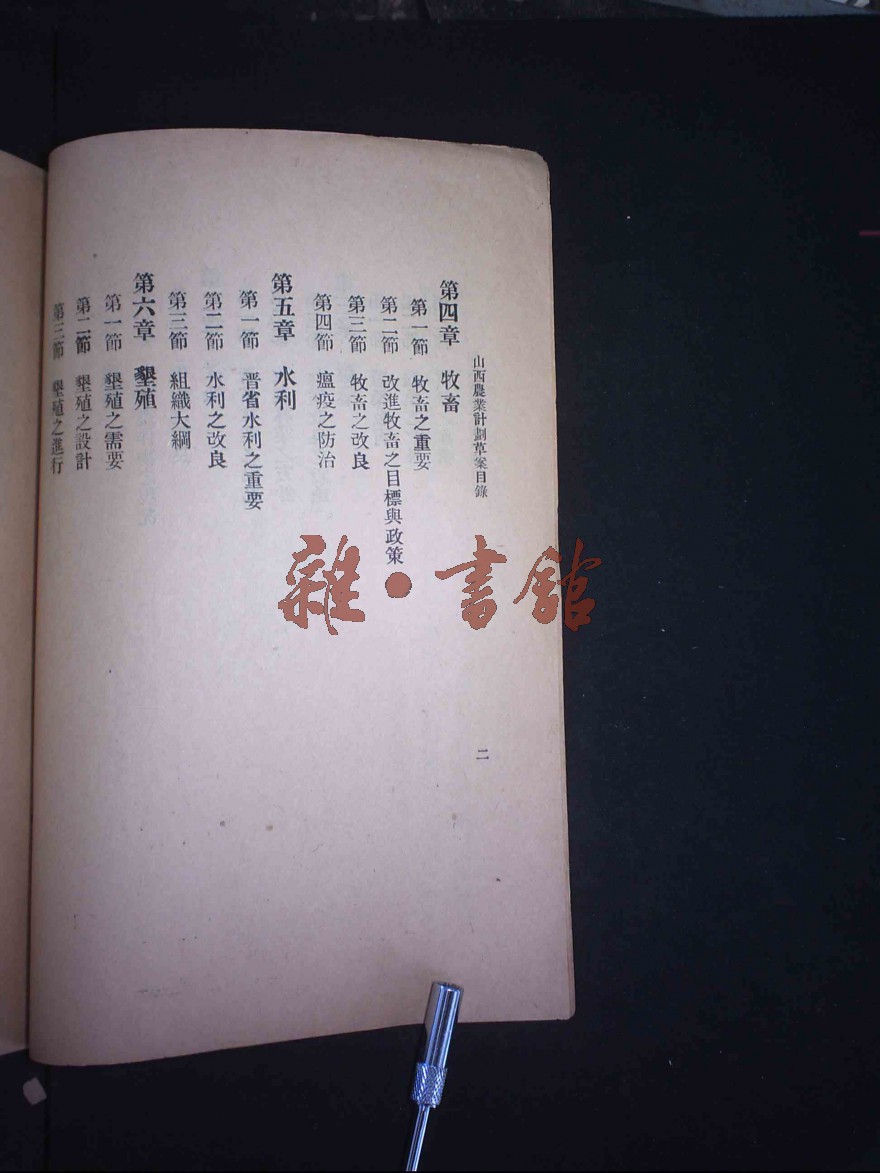 山西農業計劃草案目錄
二
第四章　牧畜
第一節　牧畜之重要
第二節　改進牧畜之目標與政策
第三節　牧畜之改良
第四節　瘟疫之防治
第五章　水利
第一節　晋省水利之重要
第二節　水利之改良
第三節　組織大綱
第六章　墾殖
第一節　墾殖之需要
第二節　墾殖之設計
第三節　墾殖之進行
雜·書館